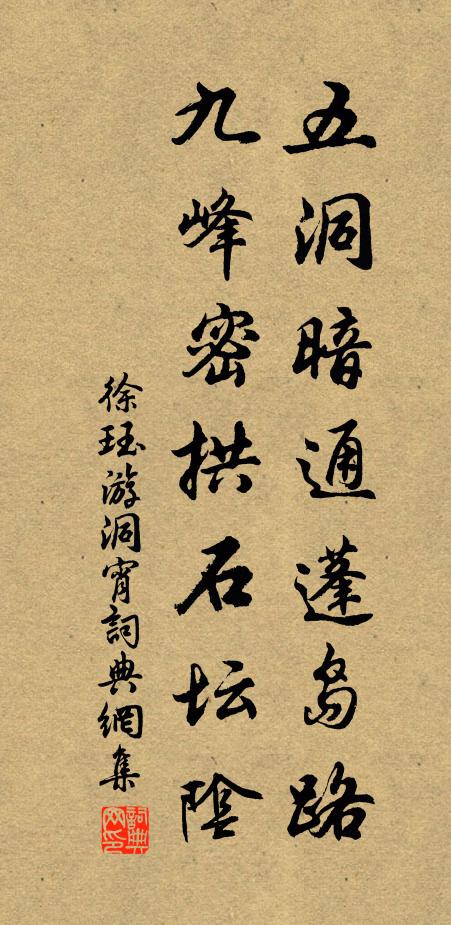 五洞暗通蓬岛路
九峰密拱石坛阴
徐珏游洞宵詞典網集
詞典网印